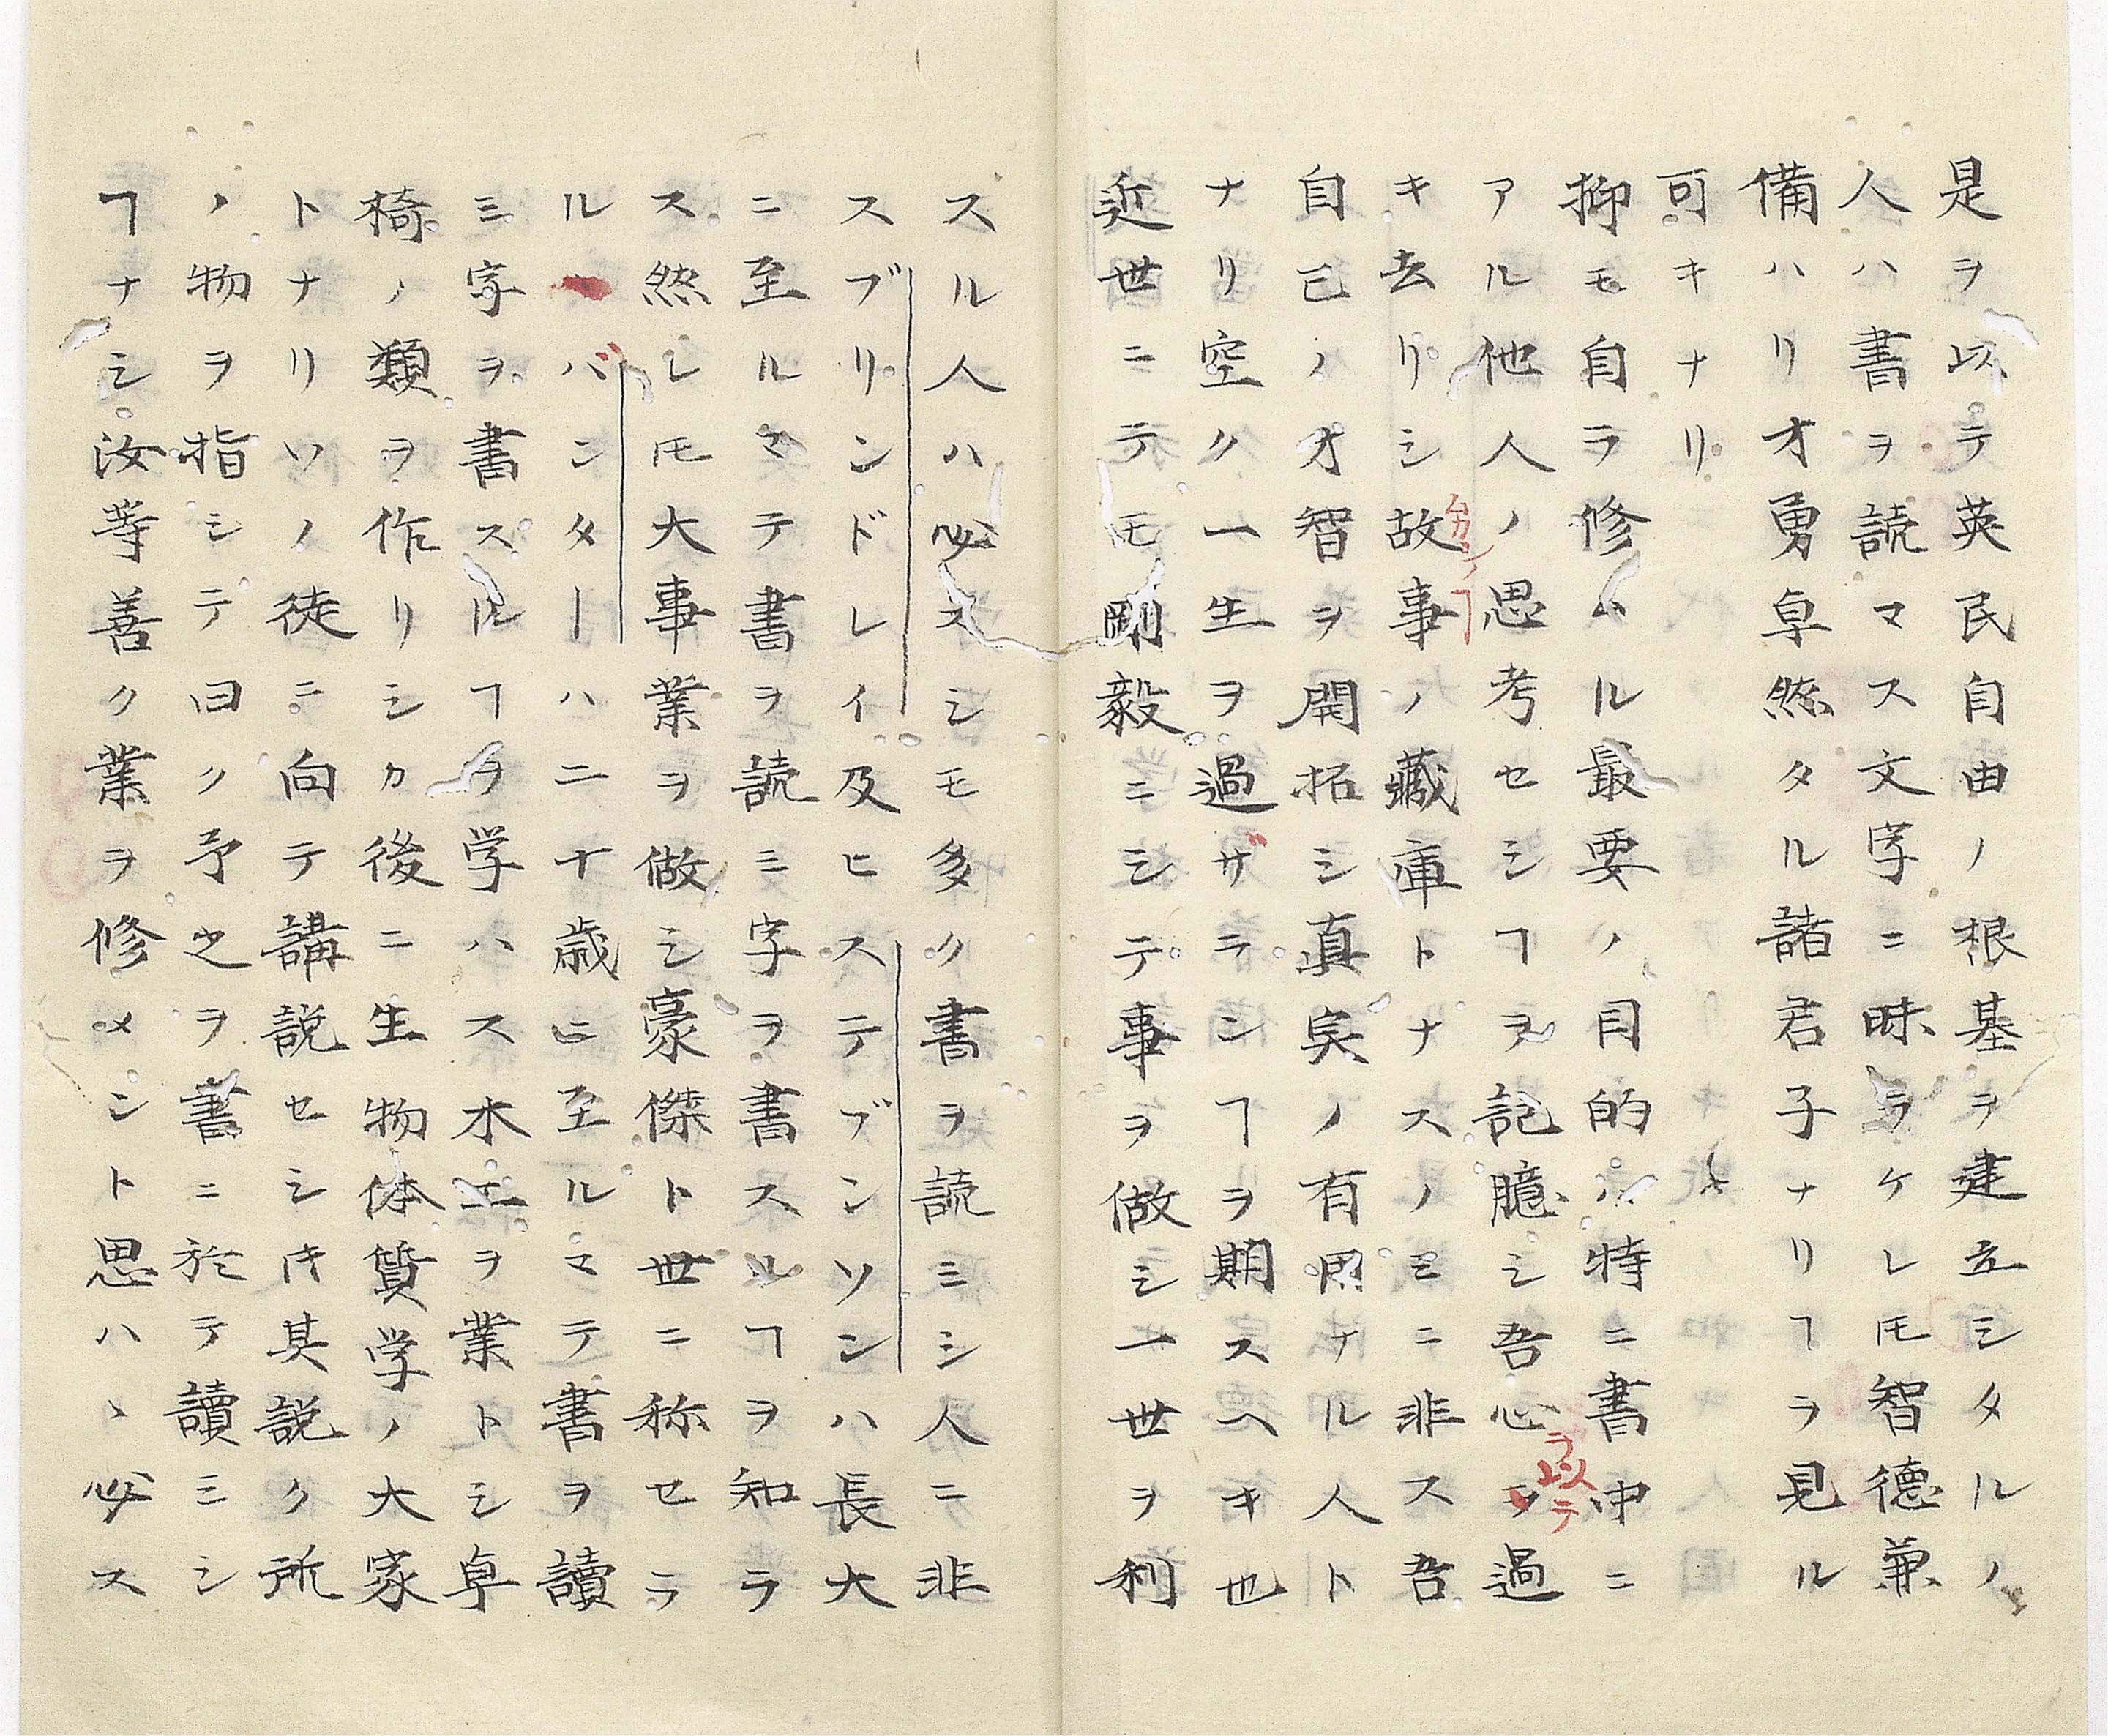 是ヲ以テ英民自由ノ根基ヲ建立シタルノ
人ハ書ヲ読マス文字ニ昧ラケレ𪜈智徳兼
備ハリ才勇卓然タル諸君子ナリヿヲ見ル
可キナリ
抑モ自ヲ修ムル最要ノ目的ハ特ニ書中ニ
アル他人ノ思考セシヿヲ記臆シ吾心ヲ過
ヲ以テ
キ去リシ故事ノ藏庫トナスノミニ非ス吾
自己ノ才智ヲ開拓シ真実ノ有用ナル人ト
ナリ空ク一生ヲ過ザランヿヲ期スヘキ也
近世ニテモ剛毅ニシテ事ヲ做シ一世ヲ利
スル人ハ必スシモ多ク書ヲ読ミシ人ニ非
スブリンドレイ及ヒステブンソンハ長大
ニ至ルマテ書ヲ読ミ字ヲ書スルヿヲ知ラ
ス然レ𪜈大事業ヲ做シ豪傑ト世ニ称セラ
ルバンターハ二十歳ニ至ルマテ書ヲ讀
ミ字ヲ書スルヿヲ学ハス木工ヲ業トシ卓
椅ノ類ヲ作リシカ後ニ生物体質学ノ大家
トナリソノ徒ニ向テ講説セシ時其説ク所
ノ物ヲ指シテ曰ク予之ヲ書ニ於テ讀ミシ
ヿナシ汝等善ク業ヲ修メント思ハヽ必ス